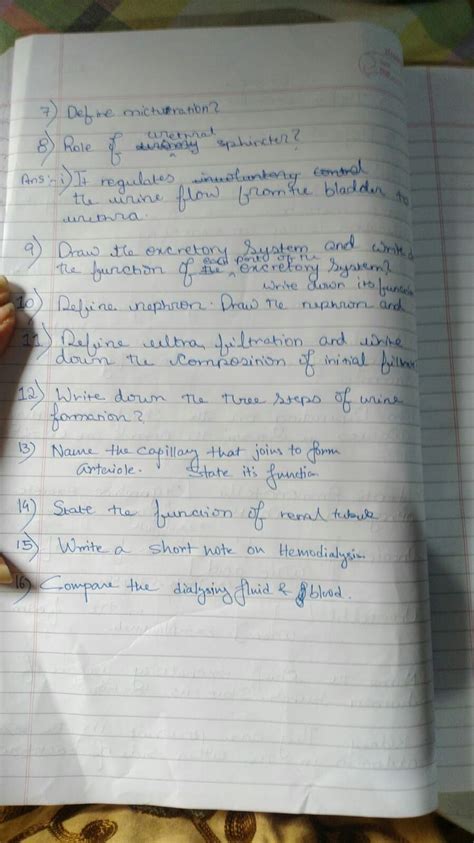 7) Define micturation?
urethral
8) Role of sphincter?
Ans:- i) It regulates involuntary control
the urine flow from the bladder to
urethra.
9) Draw the excretory system and write
each parts of the
the function of the excretory system?
write down its function
10) Define nephron. Draw the nephron and
11) Define ultra filtration and write
down the composition of initial
12) Write down the three steps of urine
formation?
13) Name the capillary that joins to form
arteriole. State its function
14) State the function of renal tubule
15) Write a short note on Hemodialysis.
16) Compare the dialysing fluid & blood.